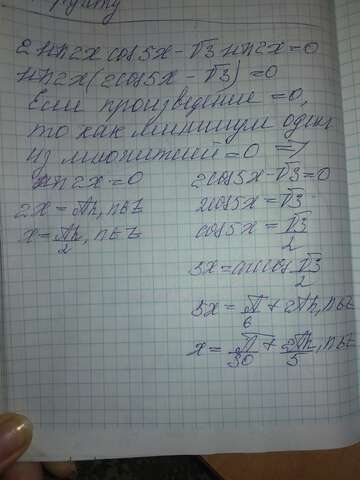 пункту
2 sin2x cos5x - √3 sin2x = 0
sin2x(2cos5x - √3) = 0
Если произведение = 0,
то как минимум один
из множителей = 0 =>
sin2x = 0
2x = πn, n∈Z
x = πn/2, n∈Z
2cos5x - √3 = 0
2cos5x = √3
cos5x = √3/2
5x = arccos √3/2
5x = π/6 + 2πn, n∈Z
x = π/30 + 2πn/5, n∈Z